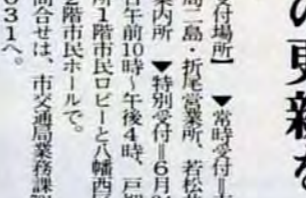 の更新を
受付場所】 ▼常時受付=市
局二島・折尾営業所、若松
案内所 ▼特別受付=6月
午前10時~午後4時、戸畑
所1階市民ロビーと八幡西
2階市民ホールで。
問合せは、市交通局業務課
031へ。